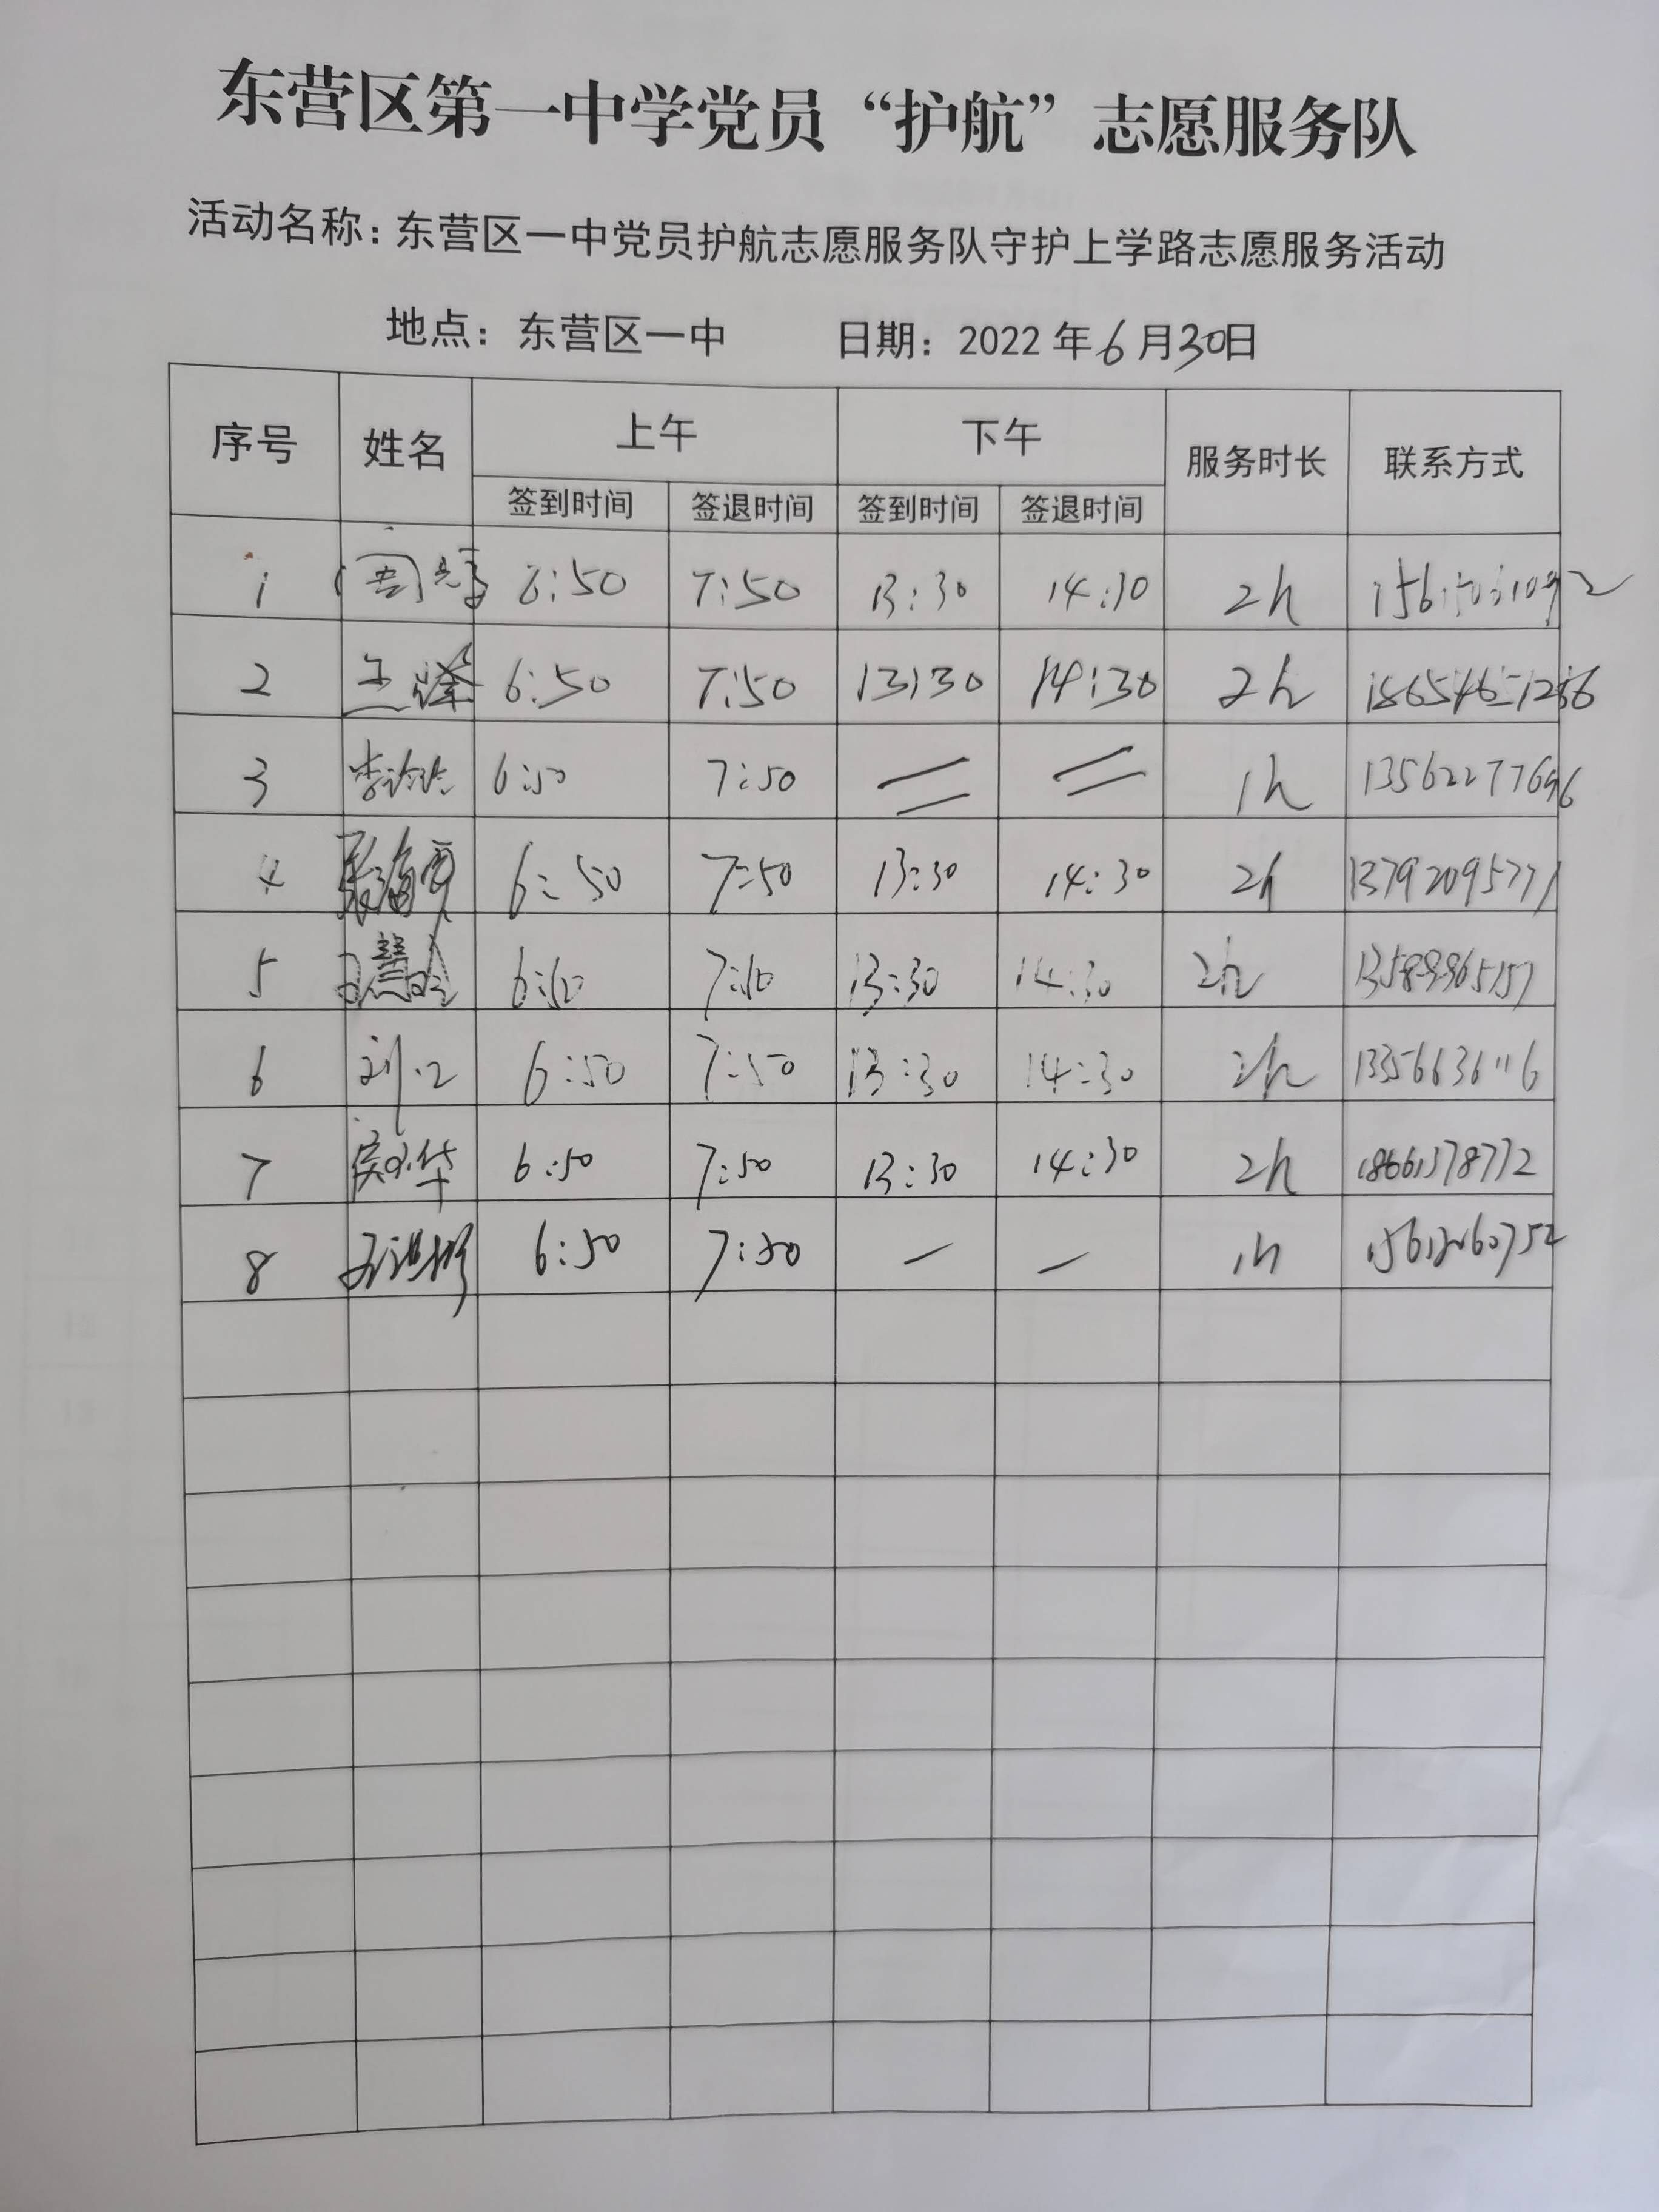 东营区第一中学党员“护航”志愿服务队
活动名称：东营区一中党员护航志愿服务队守护上学路志愿服务活动
地点：东营区一中 日期：2022年6月30日
序号 姓名 上午 下午 服务时长 联系方式
签到时间 签退时间 签到时间 签退时间
1 6:50 7:50 13:30 14:30 2h
2 6:50 7:50 13:30 14:30 2h
3 6:50 7:50 1h 13562277696
4 6:50 7:50 13:30 14:30 2h 13792095771
5 6:50 7:50 13:30 14:30 2h
6 6:50 7:50 13:30 14:30 2h 13356636116
7 6:50 7:50 13:30 14:30 2h 18661378772
8 6:50 7:50 — — 1h